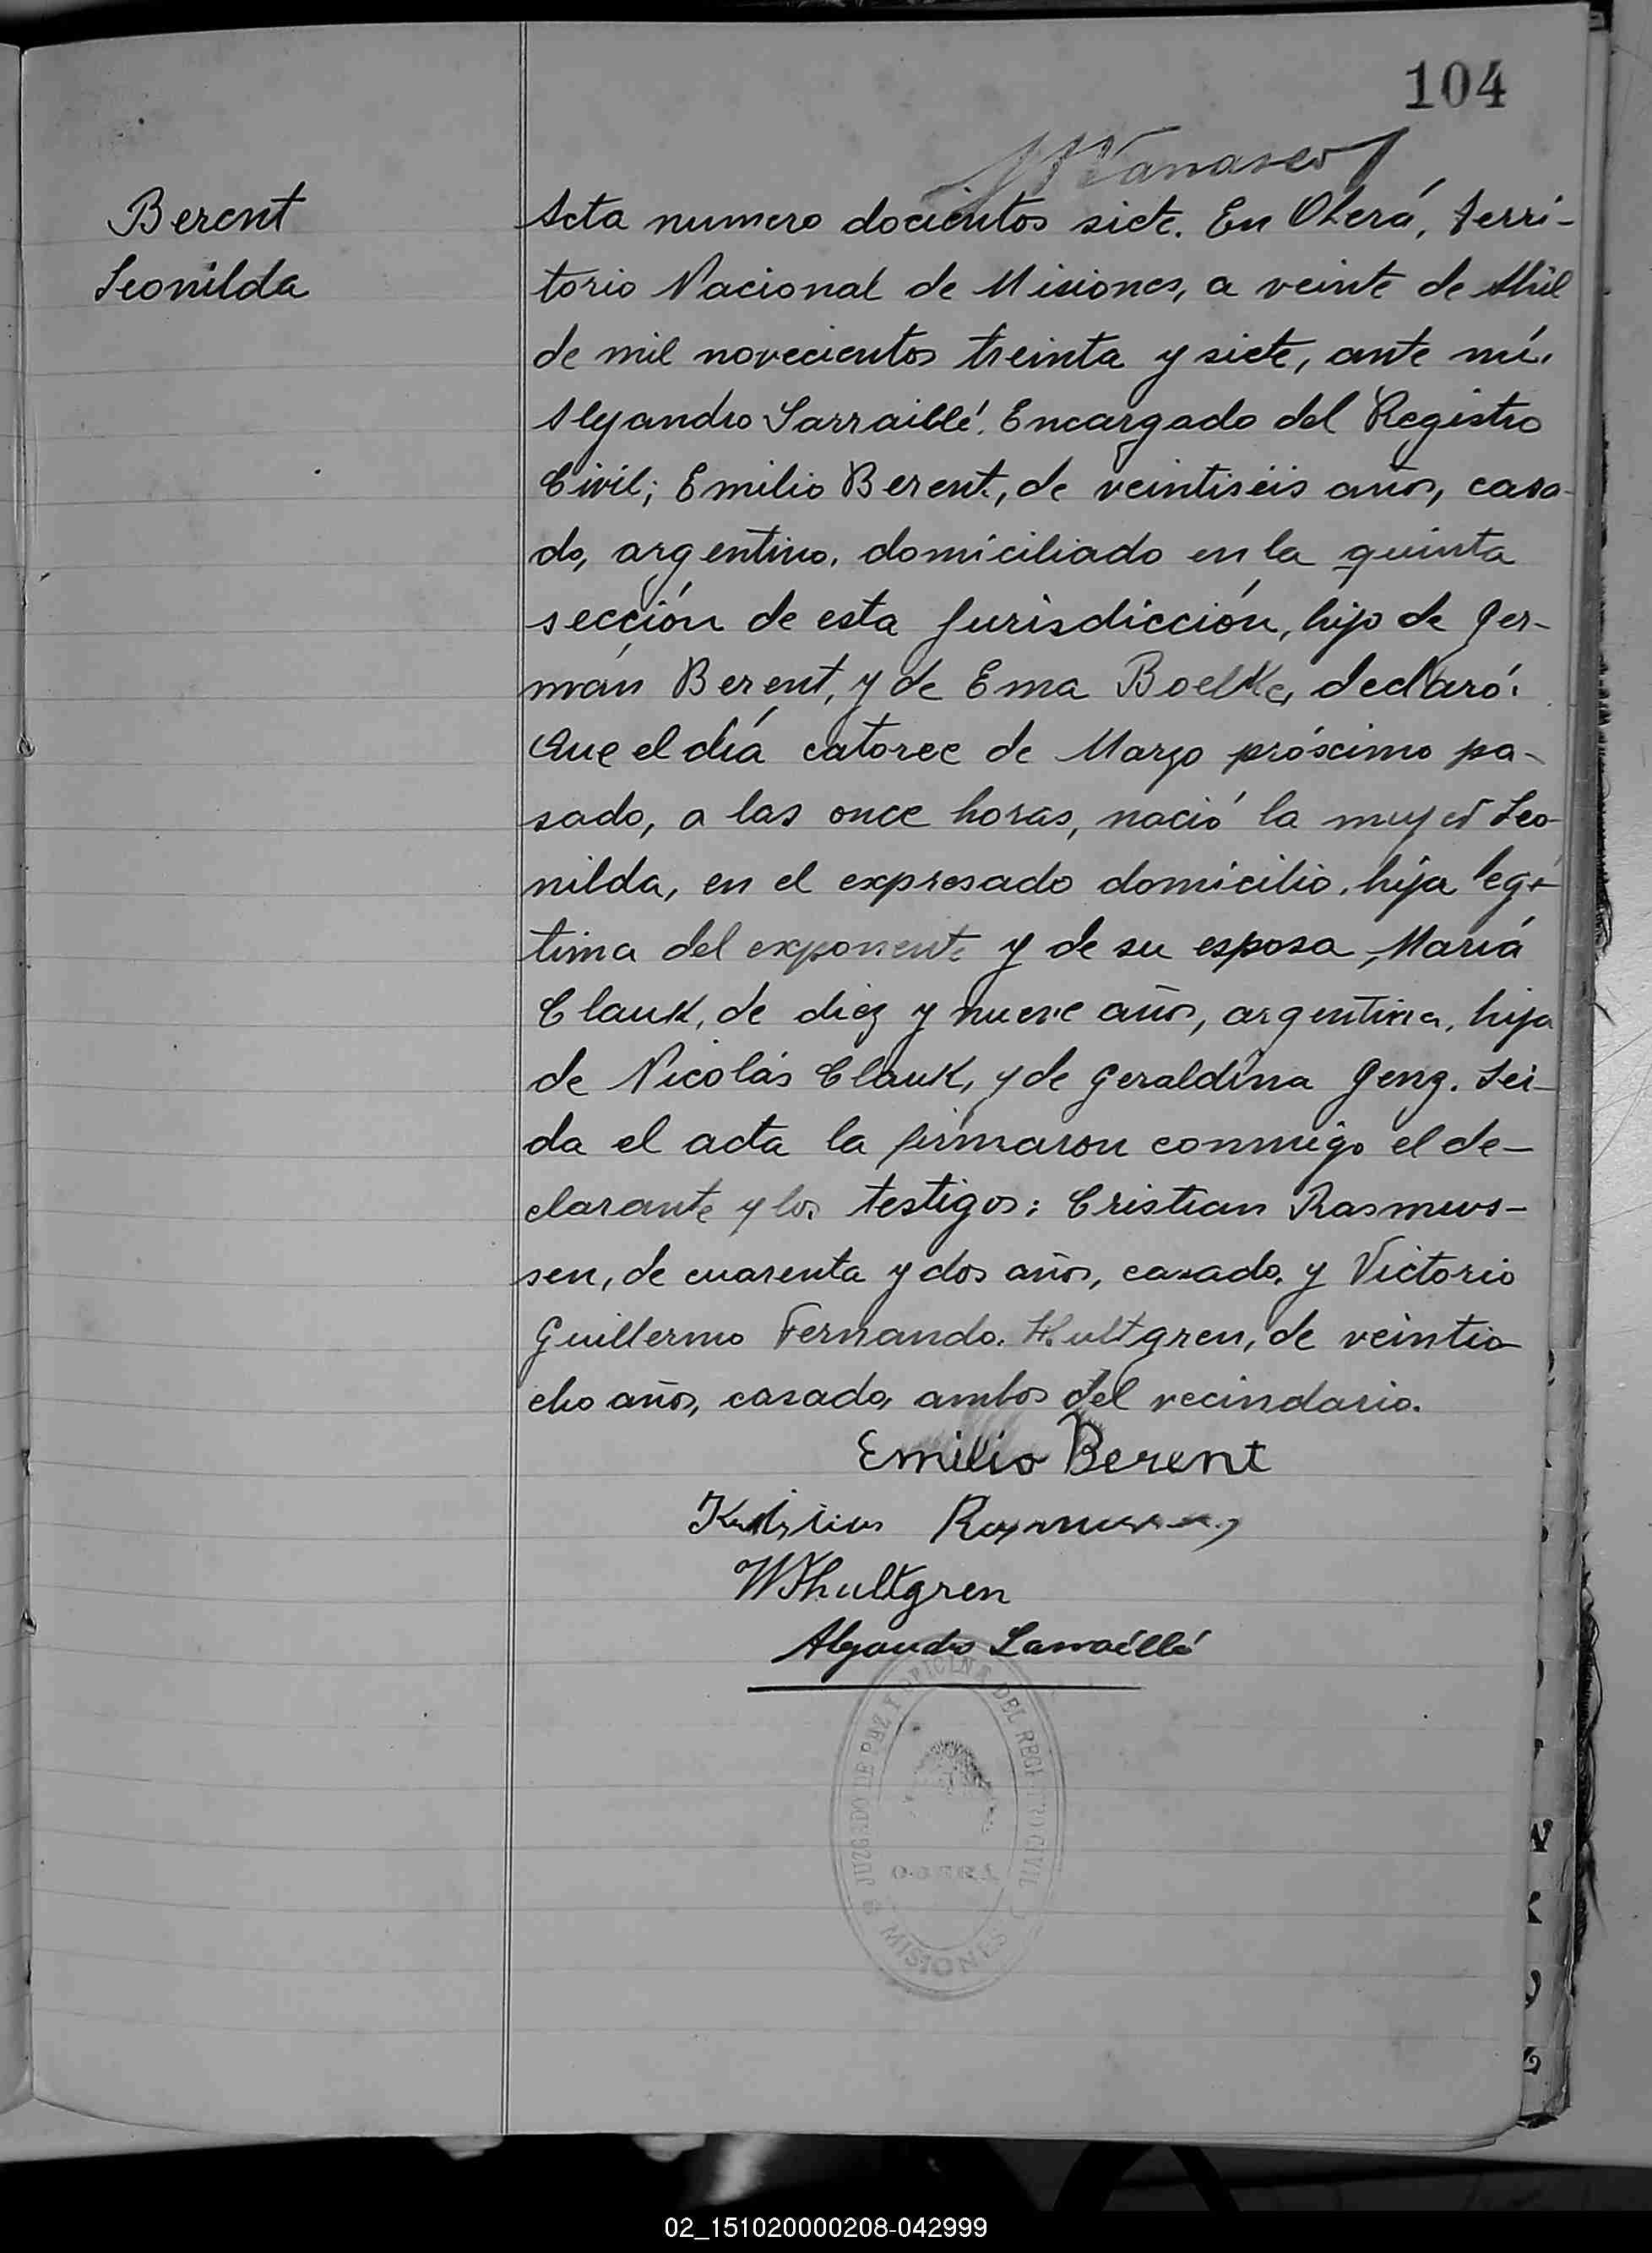 104
Berent
Leonilda
Acta numero docientos siete. En Oberá, Terri-
torio Nacional de Misiones, a veinte de Abril
de mil novecientos treinta y siete, ante mí,
Alejandro Larraillé, Encargado del Registro
Civil; Emilio Berent, de veintiséis años, casa-
do, argentino, domiciliado en la quinta
sección de esta Jurisdicción, hijo de Ger-
mán Berent, y de Ema Boelke, declaró:
Que el día catorce de Marzo próximo pa-
sado, a las once horas, nació la mujer Leo-
nilda, en el expresado domicilio, hija legí-
tima del exponente y de su esposa, María
Clauk, de diez y nueve años, argentina, hija
de Nicolás Clauk, y de Geraldina Genz. Leí-
da el acta la firmaron conmigo el de-
clarante y los testigos: Cristian Rasmus-
sen, de cuarenta y dos años, casado, y Victorio
Guillermo Fernando Hultgren, de veintio-
cho años, casado, ambos del vecindario.
Emilio Berent
Rasmussen
WFhultgren
Alejandro Larraillé
JUZGADO DE PAZ Y OFICINA DEL REGISTRO CIVIL
OBERÁ
MISIONES
02_151020000208-042999